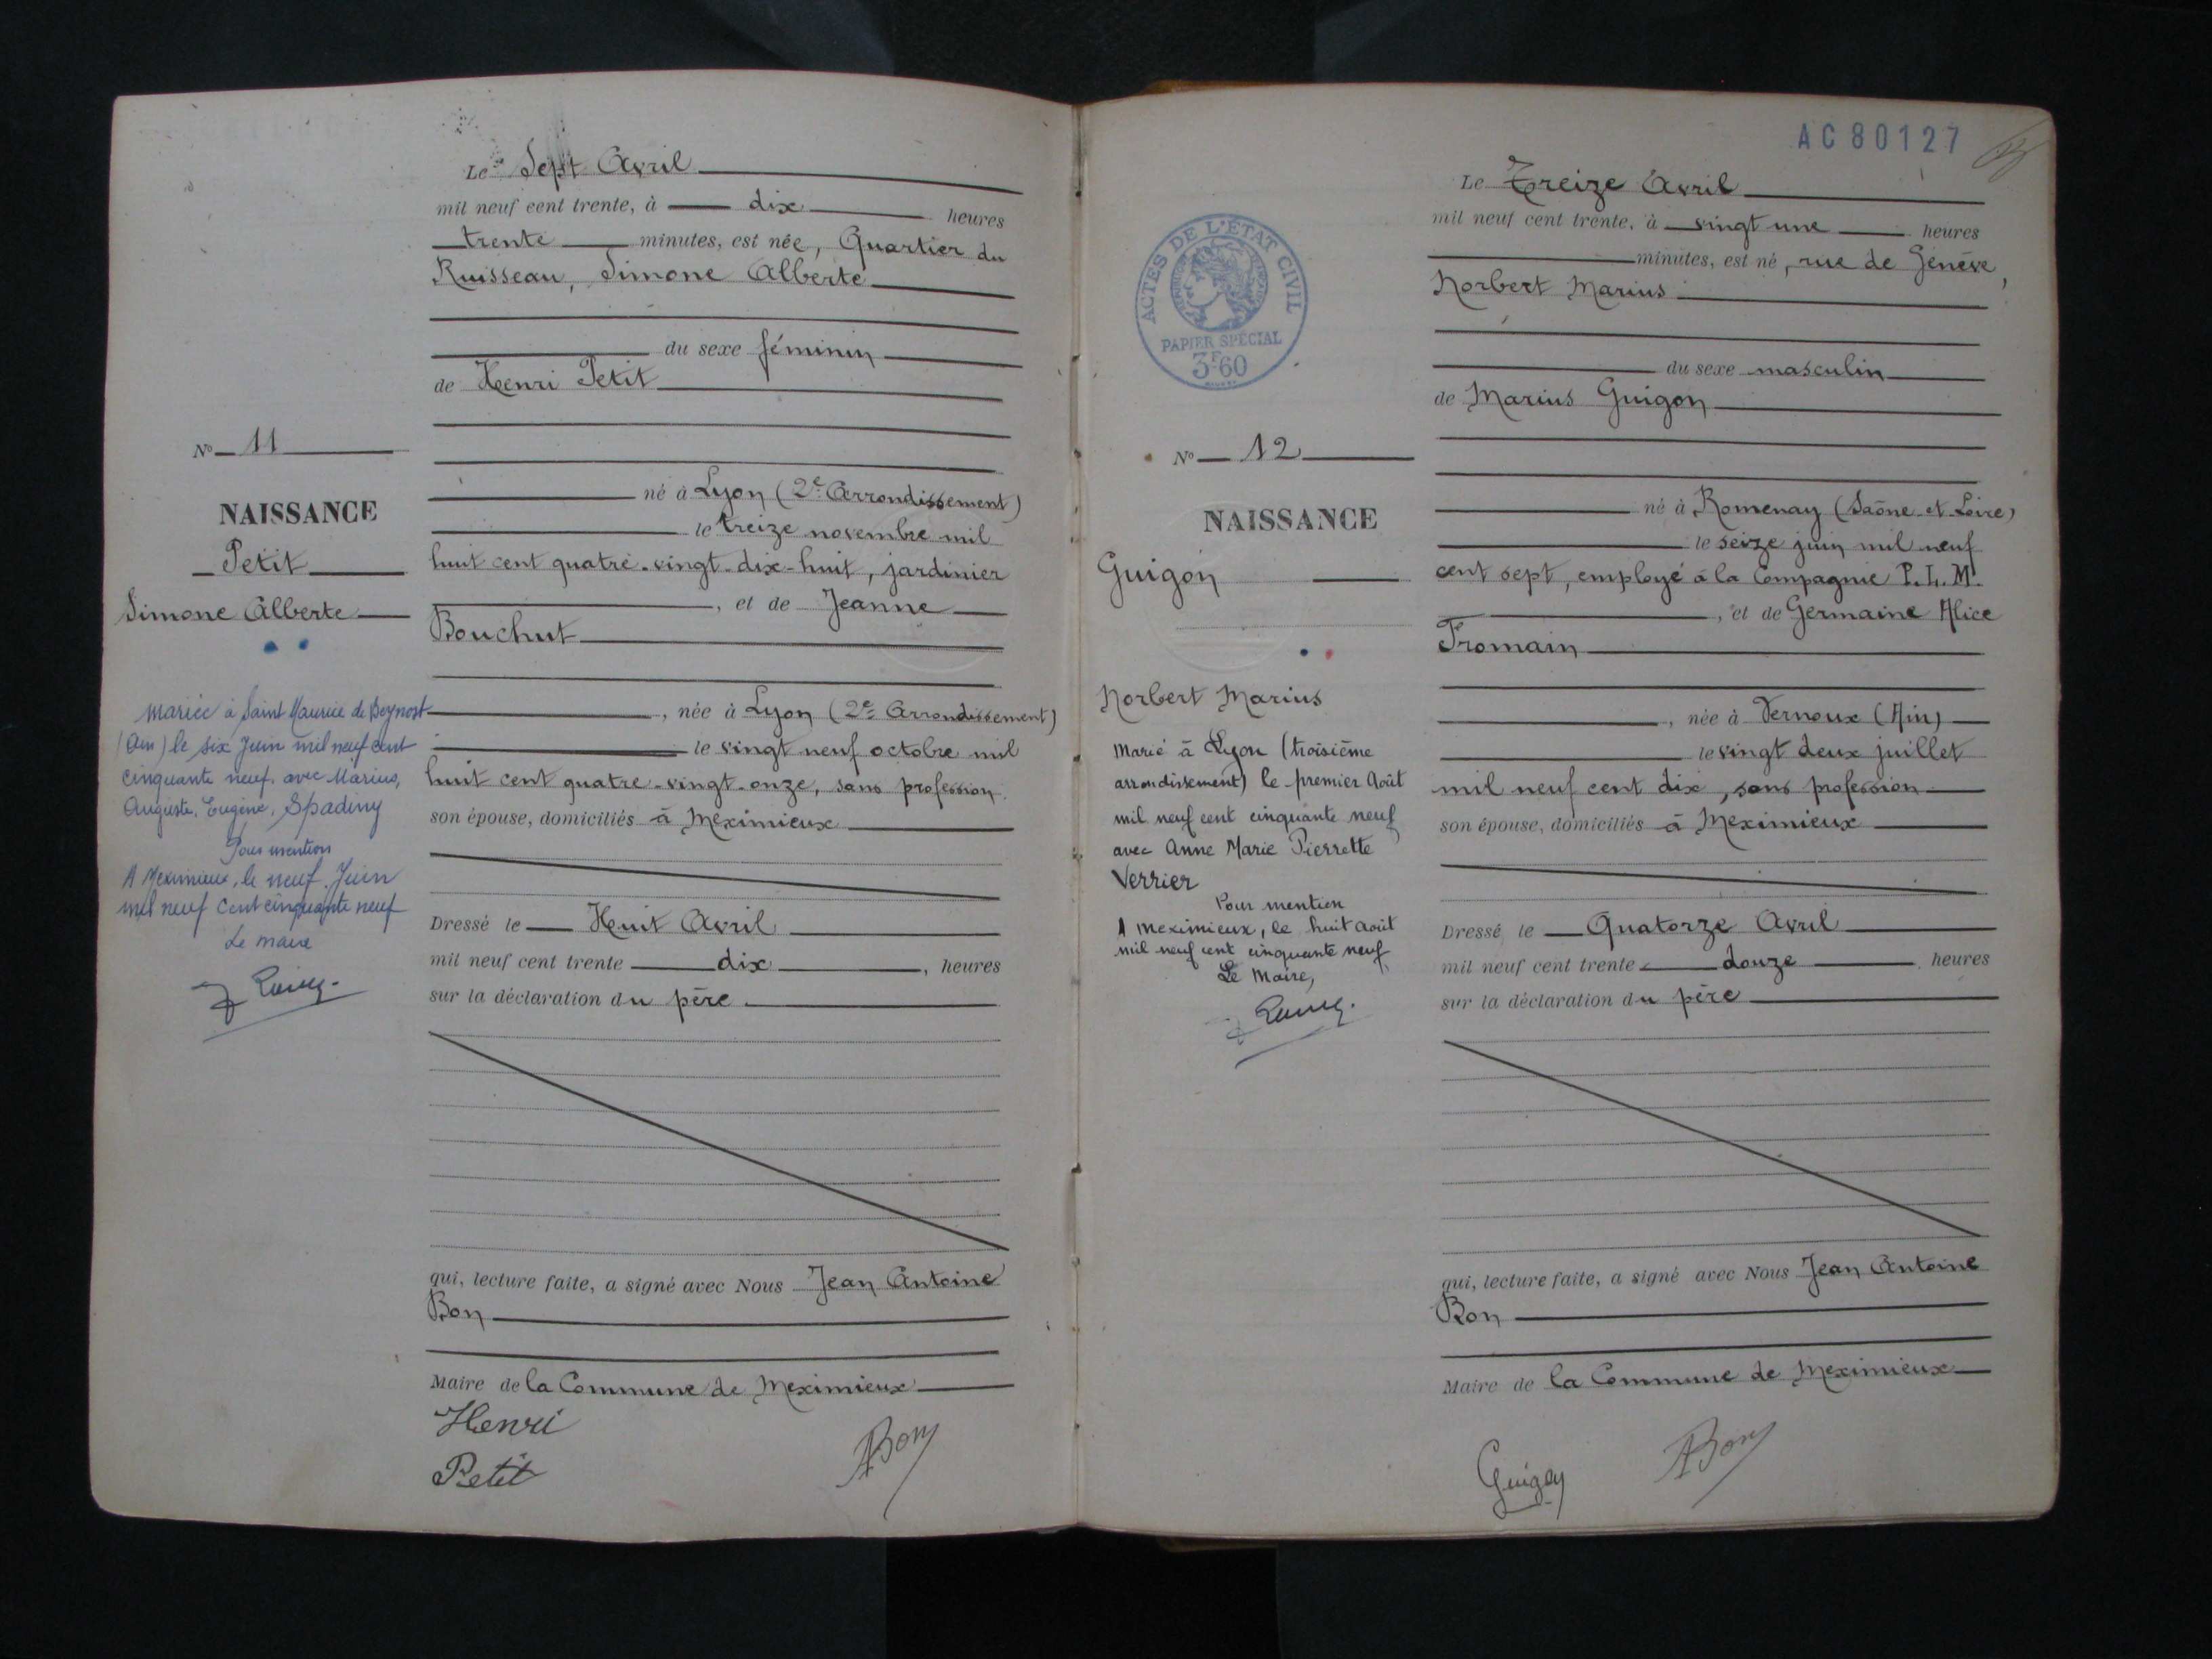 Le Sept Avril
mil neuf cent trente, à dix heures
trente minutes, est née, Quartier du
Ruisseau, Simone Alberte
du sexe féminin
de Henri Petit
N° 11
né à Lyon (2e Arrondissement)
NAISSANCE
le treize novembre mil
Petit
huit cent quatre-vingt-dix-huit, jardinier
Simone Alberte
, et de Jeanne
Bouchut
mariée à Saint Maurice de Beynost
(Ain) le six Juin mil neuf cent
cinquante neuf. avec Marius,
Auguste, Eugène, Spadiny
Pour mention
A Meximieux, le neuf Juin
mil neuf cent cinquante neuf
Le maire
, née à Lyon (2e Arrondissement)
le vingt neuf octobre mil
huit cent quatre-vingt-onze, sans profession
son épouse, domiciliés à Meximieux
Dressé le Huit Avril
mil neuf cent trente dix , heures
sur la déclaration du père
qui, lecture faite, a signé avec Nous Jean Antoine
Bon
Maire de la Commune de Meximieux
Henri
Petit
ABon
AC80127
Le Treize Avril
mil neuf cent trente, à vingt une heures
minutes, est né, rue de Genève,
Norbert Marius
ACTES DE L'ÉTAT CIVIL
PAPIER SPÉCIAL
3F60
du sexe masculin
de Marius Guigon
N° 12
né à Romenay (Saône-et-Loire)
NAISSANCE
le seize juin mil neuf
Guigon
cent sept, employé à la Compagnie P.L.M.
, et de Germaine Alice
Fromain
Norbert Marius
Marié à Lyon (troisième
arrondissement) le premier Août
mil neuf cent cinquante neuf
avec Anne Marie Pierrette
Verrier
Pour mention
A Meximieux, le huit août
mil neuf cent cinquante neuf
Le Maire,
, née à Vernoux (Ain)
le vingt deux juillet
mil neuf cent dix, sans profession
son épouse, domiciliés à Meximieux
Dressé le Quatorze Avril
mil neuf cent trente douze heures
sur la déclaration du père
qui, lecture faite, a signé avec Nous Jean Antoine
Bon
Maire de la Commune de Meximieux
Guigon
ABon